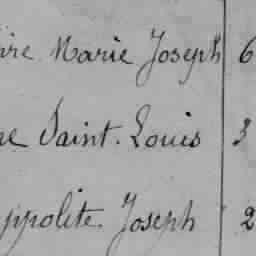 ire Marie Joseph 6
ne Saint. Louis 3
yppolite. Joseph 2